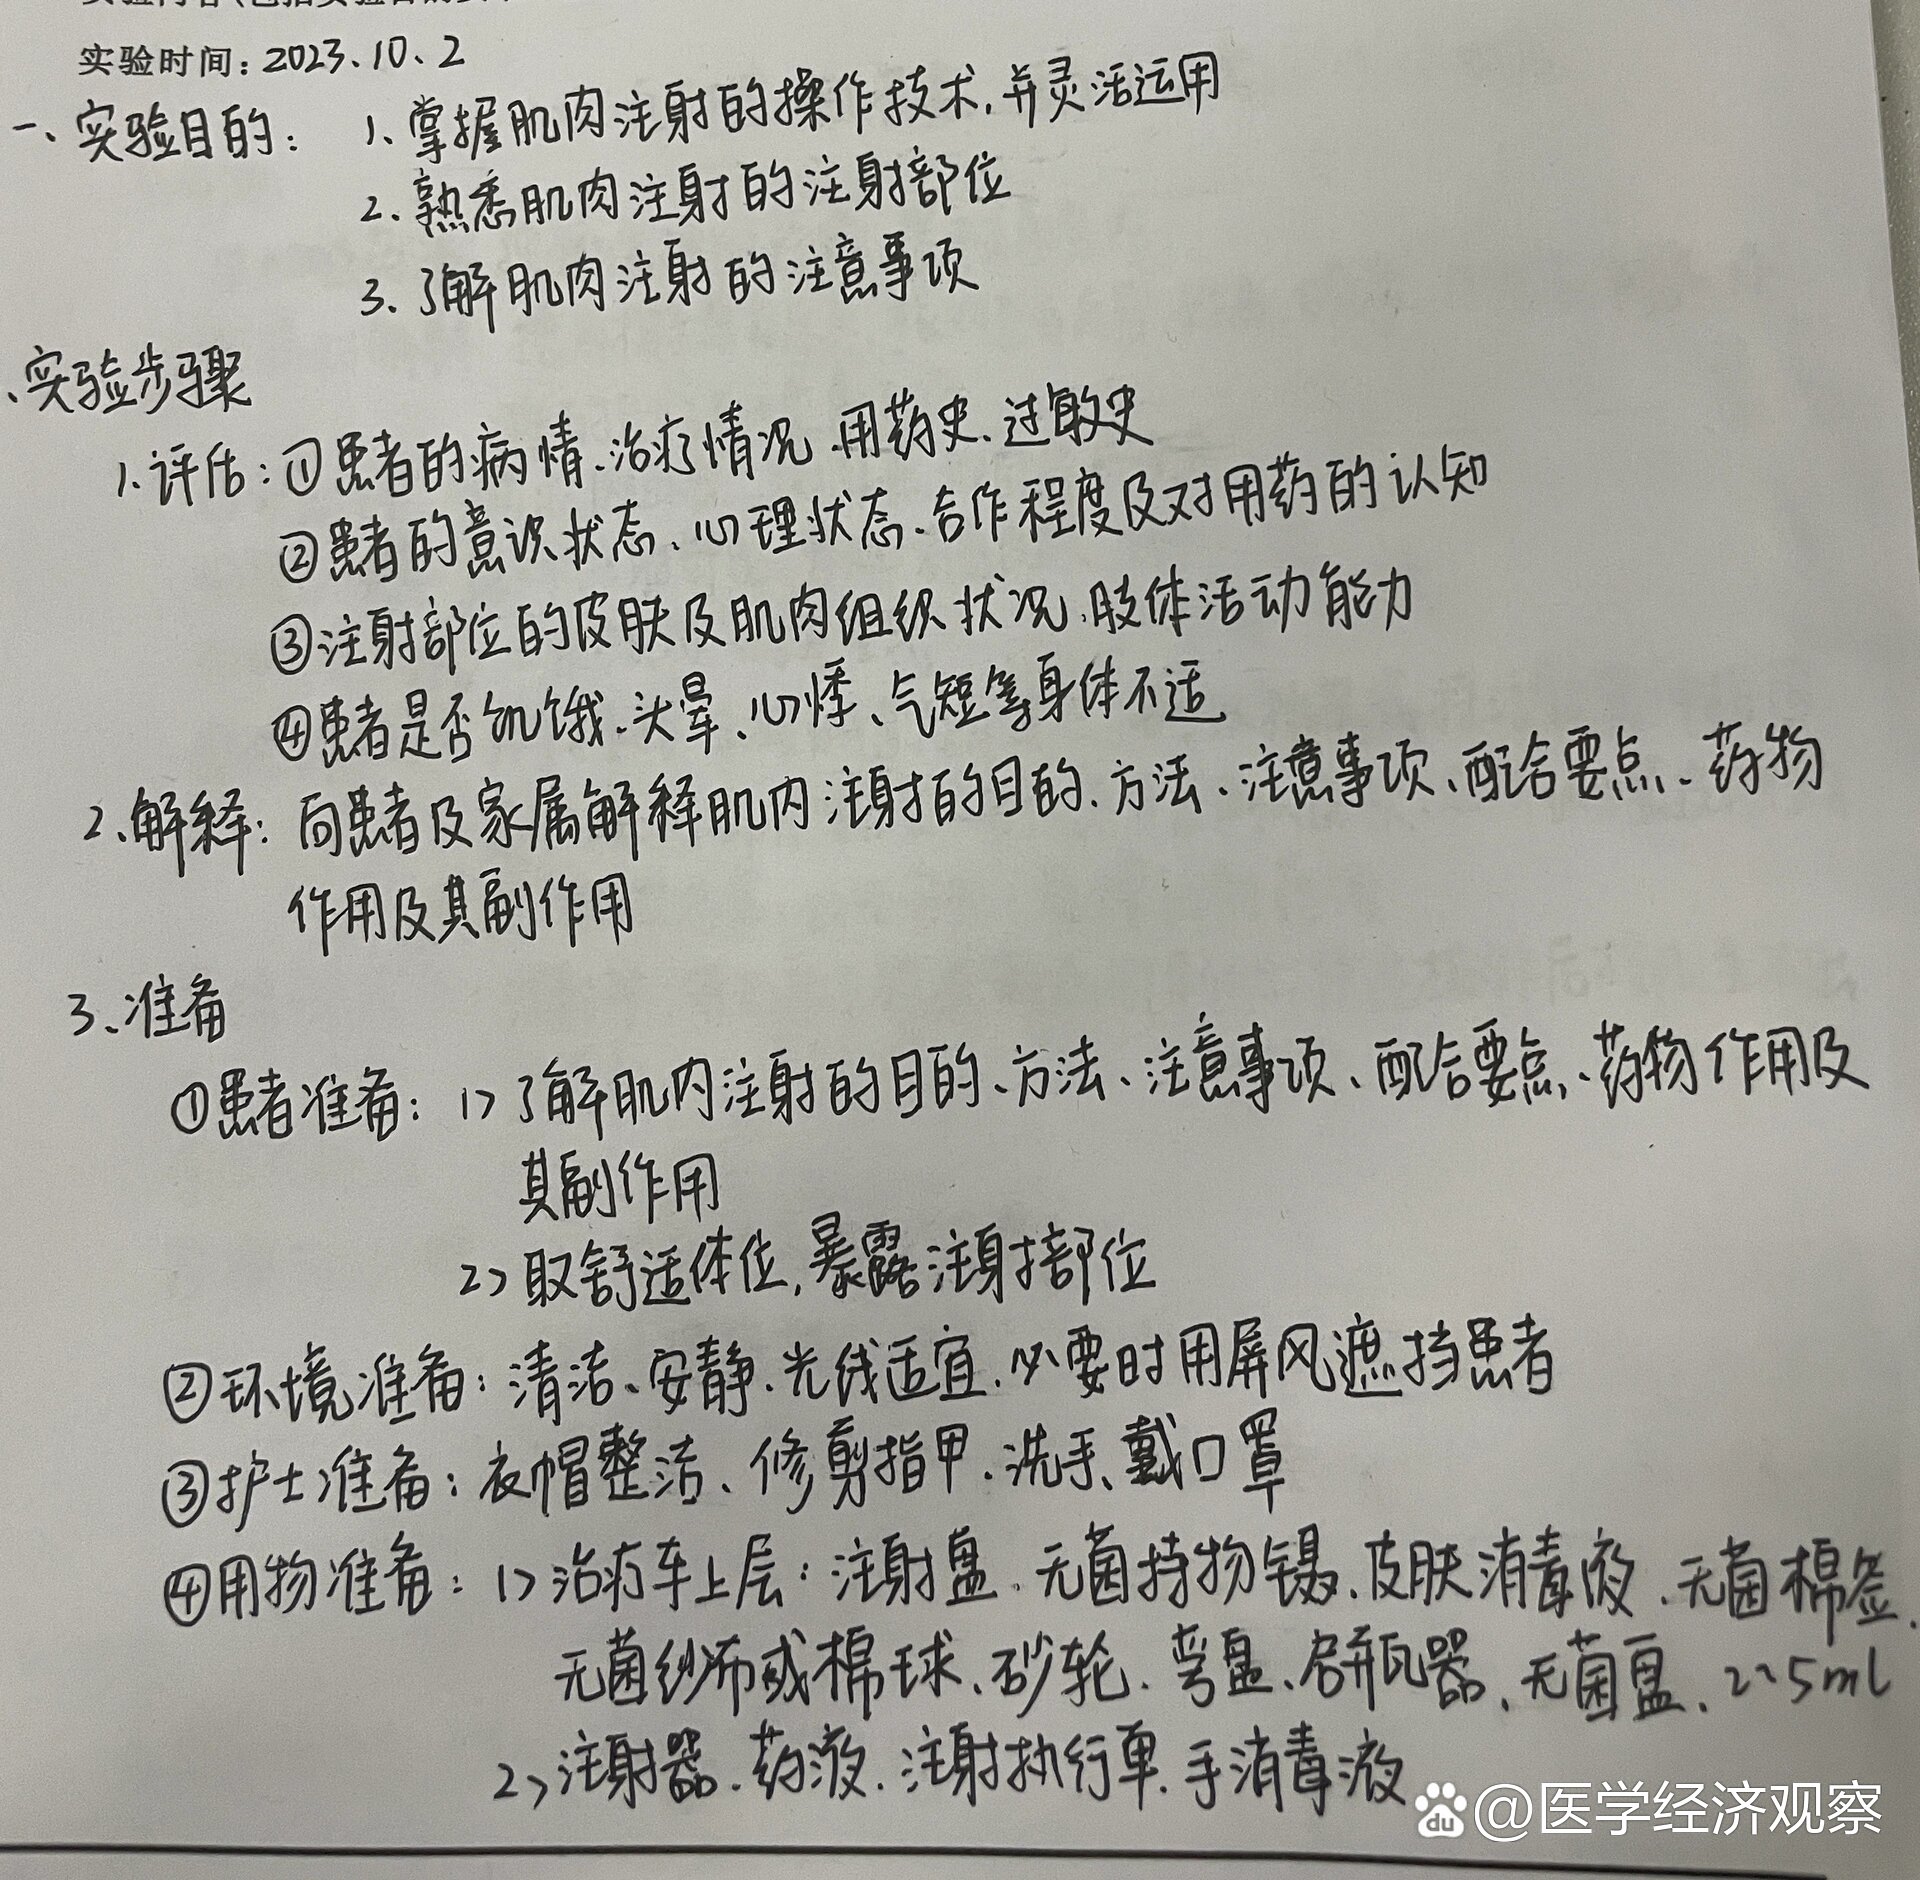 实验时间：2023.10.2
一、实验目的： 1、掌握肌肉注射的操作技术，并灵活运用
2、熟悉肌肉注射的注射部位
3、了解肌肉注射的注意事项
、实验步骤
1、评估：①患者的病情、治疗情况、用药史、过敏史
②患者的意识状态、心理状态、合作程度及对用药的认知
③注射部位的皮肤及肌肉组织状况、肢体活动能力
④患者是否饥饿、头晕、心悸、气短等身体不适
2、解释：向患者及家属解释肌内注射的目的、方法、注意事项、配合要点、药物
作用及其副作用
3、准备
①患者准备： 1>了解肌内注射的目的、方法、注意事项、配合要点、药物作用及
其副作用
2>取舒适体位，暴露注射部位
②环境准备：清洁、安静、光线适宜、必要时用屏风遮挡患者
③护士准备：衣帽整洁、修剪指甲、洗手、戴口罩
④用物准备： 1>治疗车上层：注射盘、无菌持物镊、皮肤消毒液、无菌棉签、
无菌纱布或棉球、砂轮、弯盘、启瓶器、无菌盘、2~5ml
2>注射器、药液、注射执行单、手消毒液
du @医学经济观察